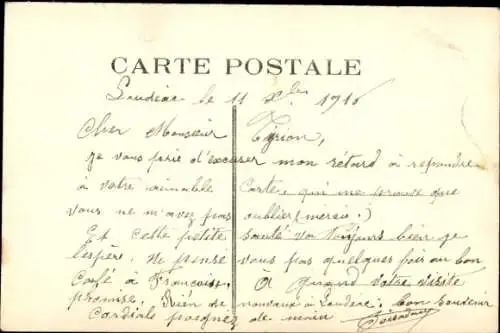 CARTE POSTALE
Loudéac le 11 Xbre 1916
Cher Monsieur Tyrion,
je vous prie d'excuser mon retard à repondre
à votre aimable Carte, qui me prouve que
vous ne m'avez pas oublier (merci.)
Et cette petite santé va toujours bien je
l'espère. Ne pensé vous pas quelques fois au bon
Café à Françoise, À quand votre visite
promise. Rien de nouveaux à Loudéac, bon Souvenir
Cordiale poignez de main